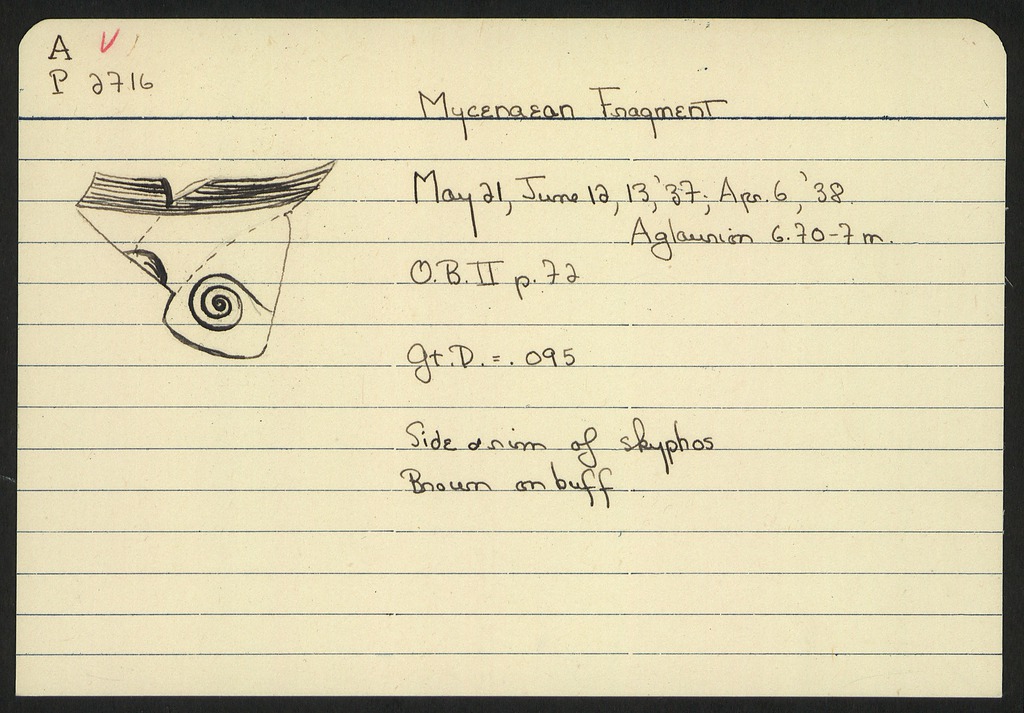 A V
P 2716
Mycenaean Fragment
May 21, June 12, 13, '37; Apr. 6, '38.
Aglaurion 6.70-7 m.
O.B. II p. 72
Gt. D. = .095
Side & rim of skyphos
Brown on buff